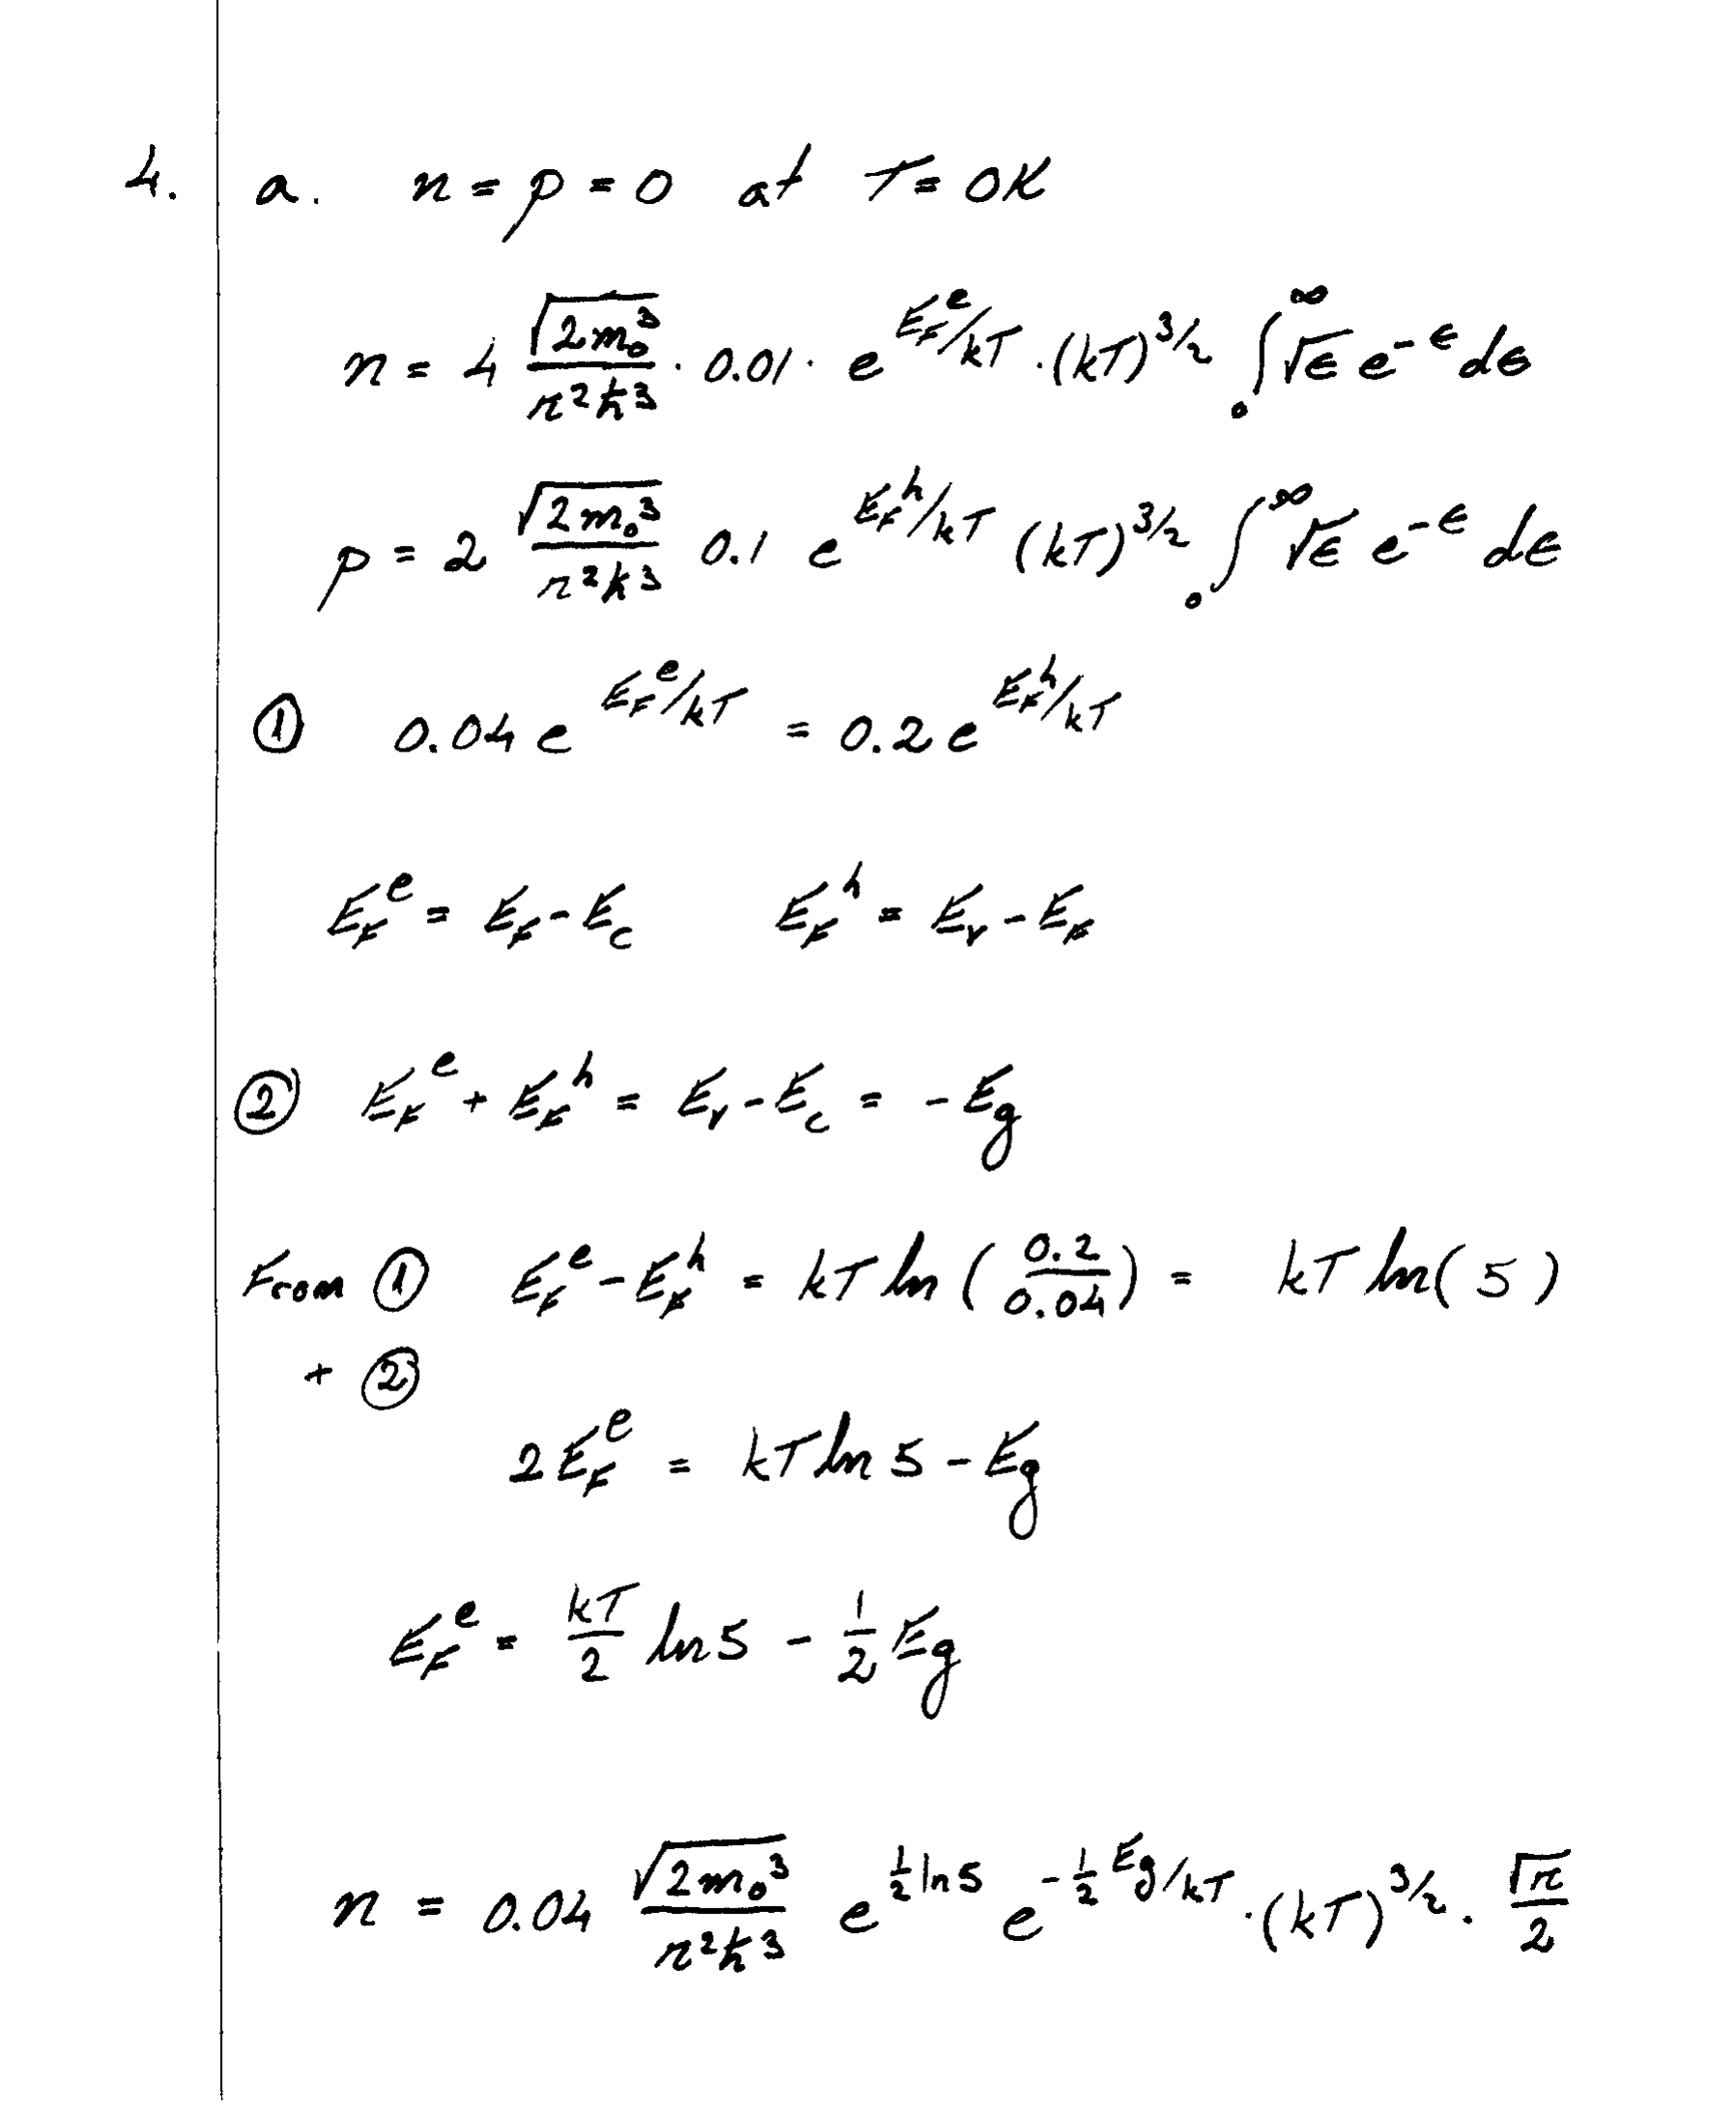 4. a. n = p = 0 at T = 0K
n = 4 √(2m₀³)/(π²ħ³) · 0.01 · e^(E_F^e/kT) · (kT)^(3/2) ∫₀^∞ √ϵ e^(-ϵ) dϵ
p = 2 √(2m₀³)/(π²ħ³) 0.1 e^(E_F^h/kT) (kT)^(3/2) ∫₀^∞ √ϵ e^(-ϵ) dϵ
① 0.04 e^(E_F^e/kT) = 0.2 e^(E_F^h/kT)
E_F^e = E_F - E_c E_F^h = E_v - E_F
② E_F^e + E_F^h = E_v - E_c = - E_g
From ① E_F^e - E_F^h = kT ln (0.2/0.04) = kT ln(5)
+ ②
2 E_F^e = kT ln 5 - E_g
E_F^e = kT/2 ln 5 - 1/2 E_g
n = 0.04 √(2m₀³)/(π²ħ³) e^(1/2 ln 5) e^(-1/2 E_g/kT) · (kT)^(3/2) · √π/2